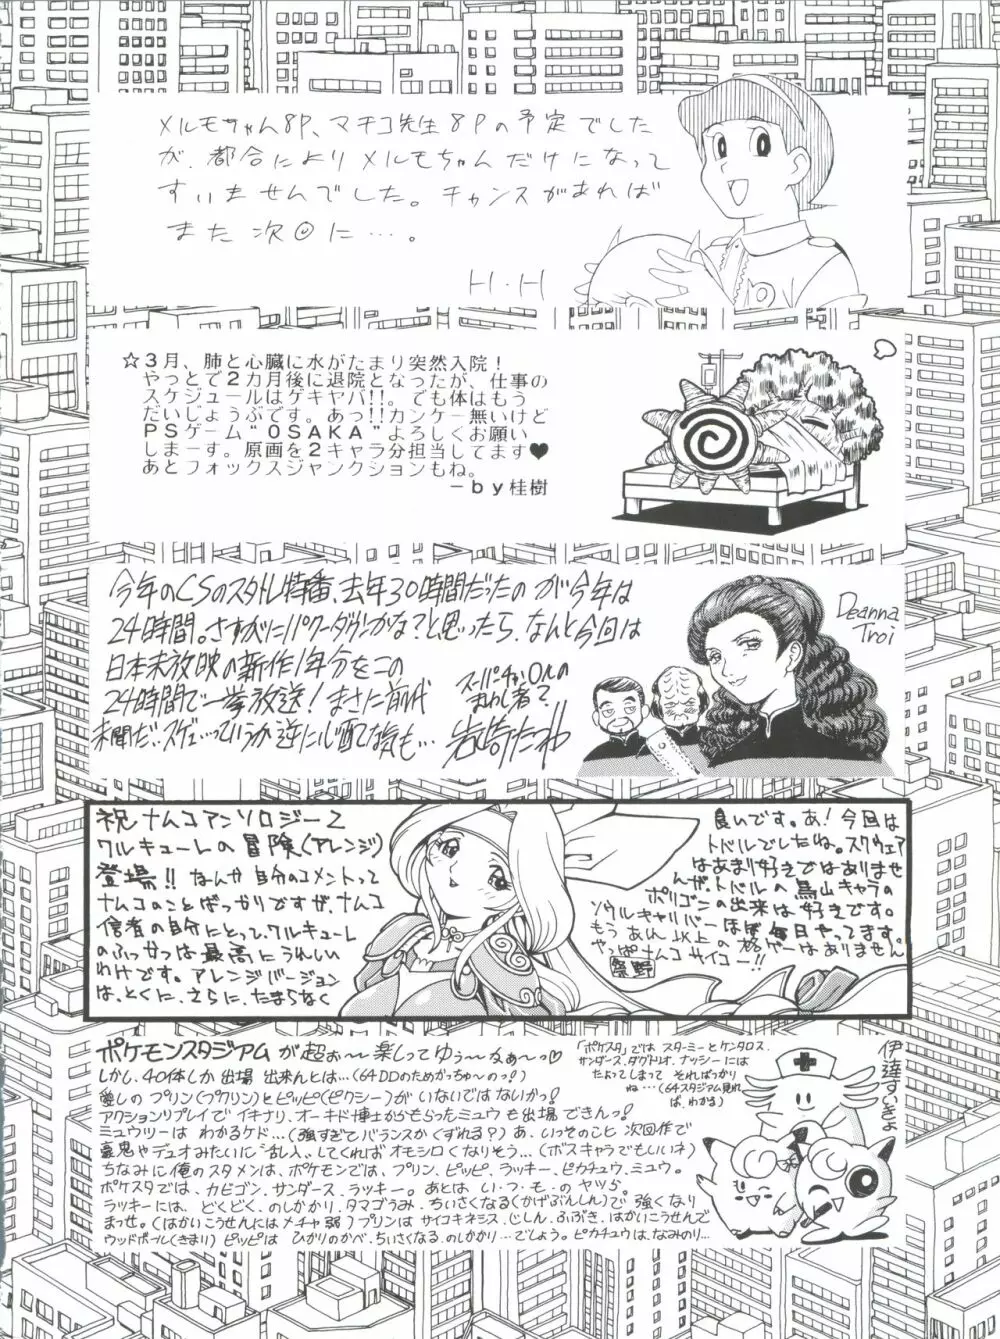 メルモちゃん8P、マチコ先生8Pの予定でした
が、都合によりメルモちゃんだけになって
すいませんでした。チャンスがあれば
また次回に…。
H.H
☆3月、肺と心臓に水がたまり突然入院！
やっとで2カ月後に退院となったが、仕事の
スケジュールはゲキヤバ!!。でも体はもう
だいじょうぶです。あっ!!カンケー無いけど
PSゲーム“OSAKA”よろしくお願い
しまーす。原画を2キャラ分担当してます♥
あとフォックスジャンクションもね。
－by桂樹
今年のCSのスタトレ特番、去年30時間だったのが今年は
24時間。さすがにパワーダウンかな？と思ったら、なんと今回は
日本未放映の新作1年分をこの
24時間で一挙放送！まさに前代
未聞だ、スゲェ…っていうか逆に心配な気も…
スーパーチャンネルの
まわし者？
岩崎たつ
Deanna
Troi
祝 ナムコアンソロジー2
ワルキューレの冒険(アレンジ)
登場!! なんか自分のコメントって
ナムコのことばっかりですが、ナムコ
信者の自分にとって、ワルキューレ
のふっかつは最高にうれしい
わけです。アレンジバージョン
は、とくに、さらに、たまらなく
良いです。あ！今回は
トバルでしたね。スクウェア
はあまり好きではありませ
んが、トバルの鳥山キャラの
ポリゴンの出来は好きです。
ソウルキャリバーはほぼ毎日やってます。
もうあれ以上の格ゲーはありません
やっぱナムコサイコー!!
ポケモンスタジアムが超ぉ～楽しってゆぅ～なぁ～っ♡
しかし、40体しか出場出来んとは…(64DDのためがっちゅ～のっ！)
愛しのプリン(プクリン)とピッピ(ピクシー)がいないではないかっ！
アクションリプレイでイキナリ、オーキド博士からもらったミュウも出場できんっ！
ミュウツーはわかるケド…(強すぎてバランスがくずれる？)あ、いっそのこと次回作で
豪鬼やデュオみたいに乱入、してくればオモシロくなりそう…(ボスキャラでもしいいネ)
ちなみに俺のスタメンは、ポケモンでは、プリン、ピッピ、ラッキー、ピカチュウ、ミュウ。
ポケスタでは、カビゴン、サンダース、ラッキー。あとはい・つ・も・のヤツら。
ラッキーには、どくどく、のしかかり、タマゴうみ、ちいさくなる(かげぶんしん)で強くなり
まっせ。(はかいこうせんにはメチャ弱)プリンはサイコキネシス、じしん、ふぶき、はかいこうせんで
ウッドボール(きまり)ピッピは ひかりのかべ、ちいさくなる、のしかかり…でしょう。ピカチュウは、なみのり…
「ポケスタ」ではスターミーとケンタロス、
サンダース、ダグトリオ、ナッシーには
たよってしまって そればっかり
ね…(64スタジアム見れ
ば、わかる)
伊達すいきょ